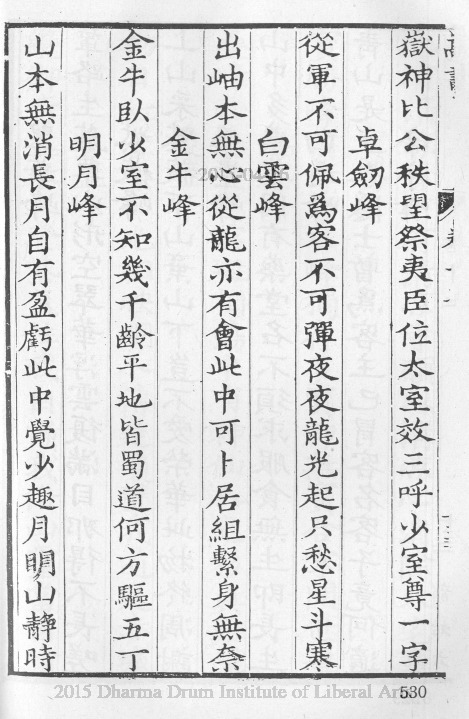 嶽神比公秩望祭夷臣位太室效三呼少室尊一字
卓劒峰
從軍不可佩爲客不可彈夜夜龍光起只愁星斗寒
白雲峰
出岫本無心從龍亦有會此中可卜居組繫身無奈
金牛峰
金牛臥少室不知幾千齡平地皆蜀道何方驅五丁
明月峰
山本無消長月自有盈虧此中覺少趣月明山靜時
2015 Dharma Drum Institute of Liberal Arts
530